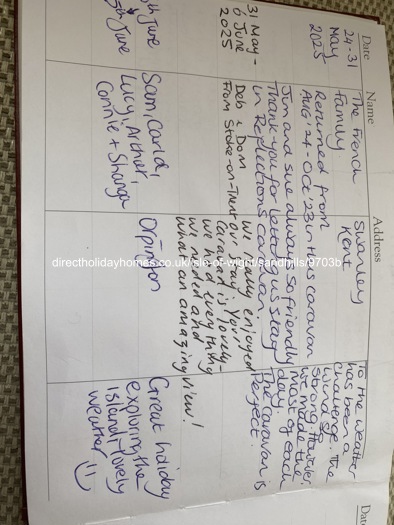 Date
Name
Address
Dat
24-31
May
2025
The French
family.
Swanley
Kent
Returned from
Aug '24 - Oct '23 in this caravan
Jim and Sue always so friendly
Thank you for letting us stay
in Reflections caravan.
the weather
has been a
challenge. The
wind so
strong. However,
we made the
most of each
day
The caravan is
Perfect.
31 May -
6 June
2025
Deb & Dom
From Stoke-on-Trent
We really enjoyed
our stay. Your
caravan is lovely -
we had everything
we needed and
what an amazing view!
June
June
Sam, Carla,
Lucy, Arthur,
Connie +
Orpington
Great holiday
exploring the
Island, lovely
weather
directholidayhomes.co.uk/isle-of-wight/sandhills/9703b